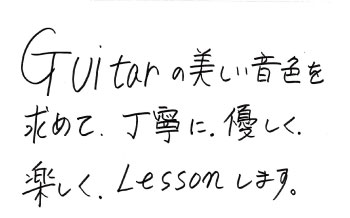 Guitarの美しい音色を
求めて、丁寧に、優しく、
楽しく、Lessonします。